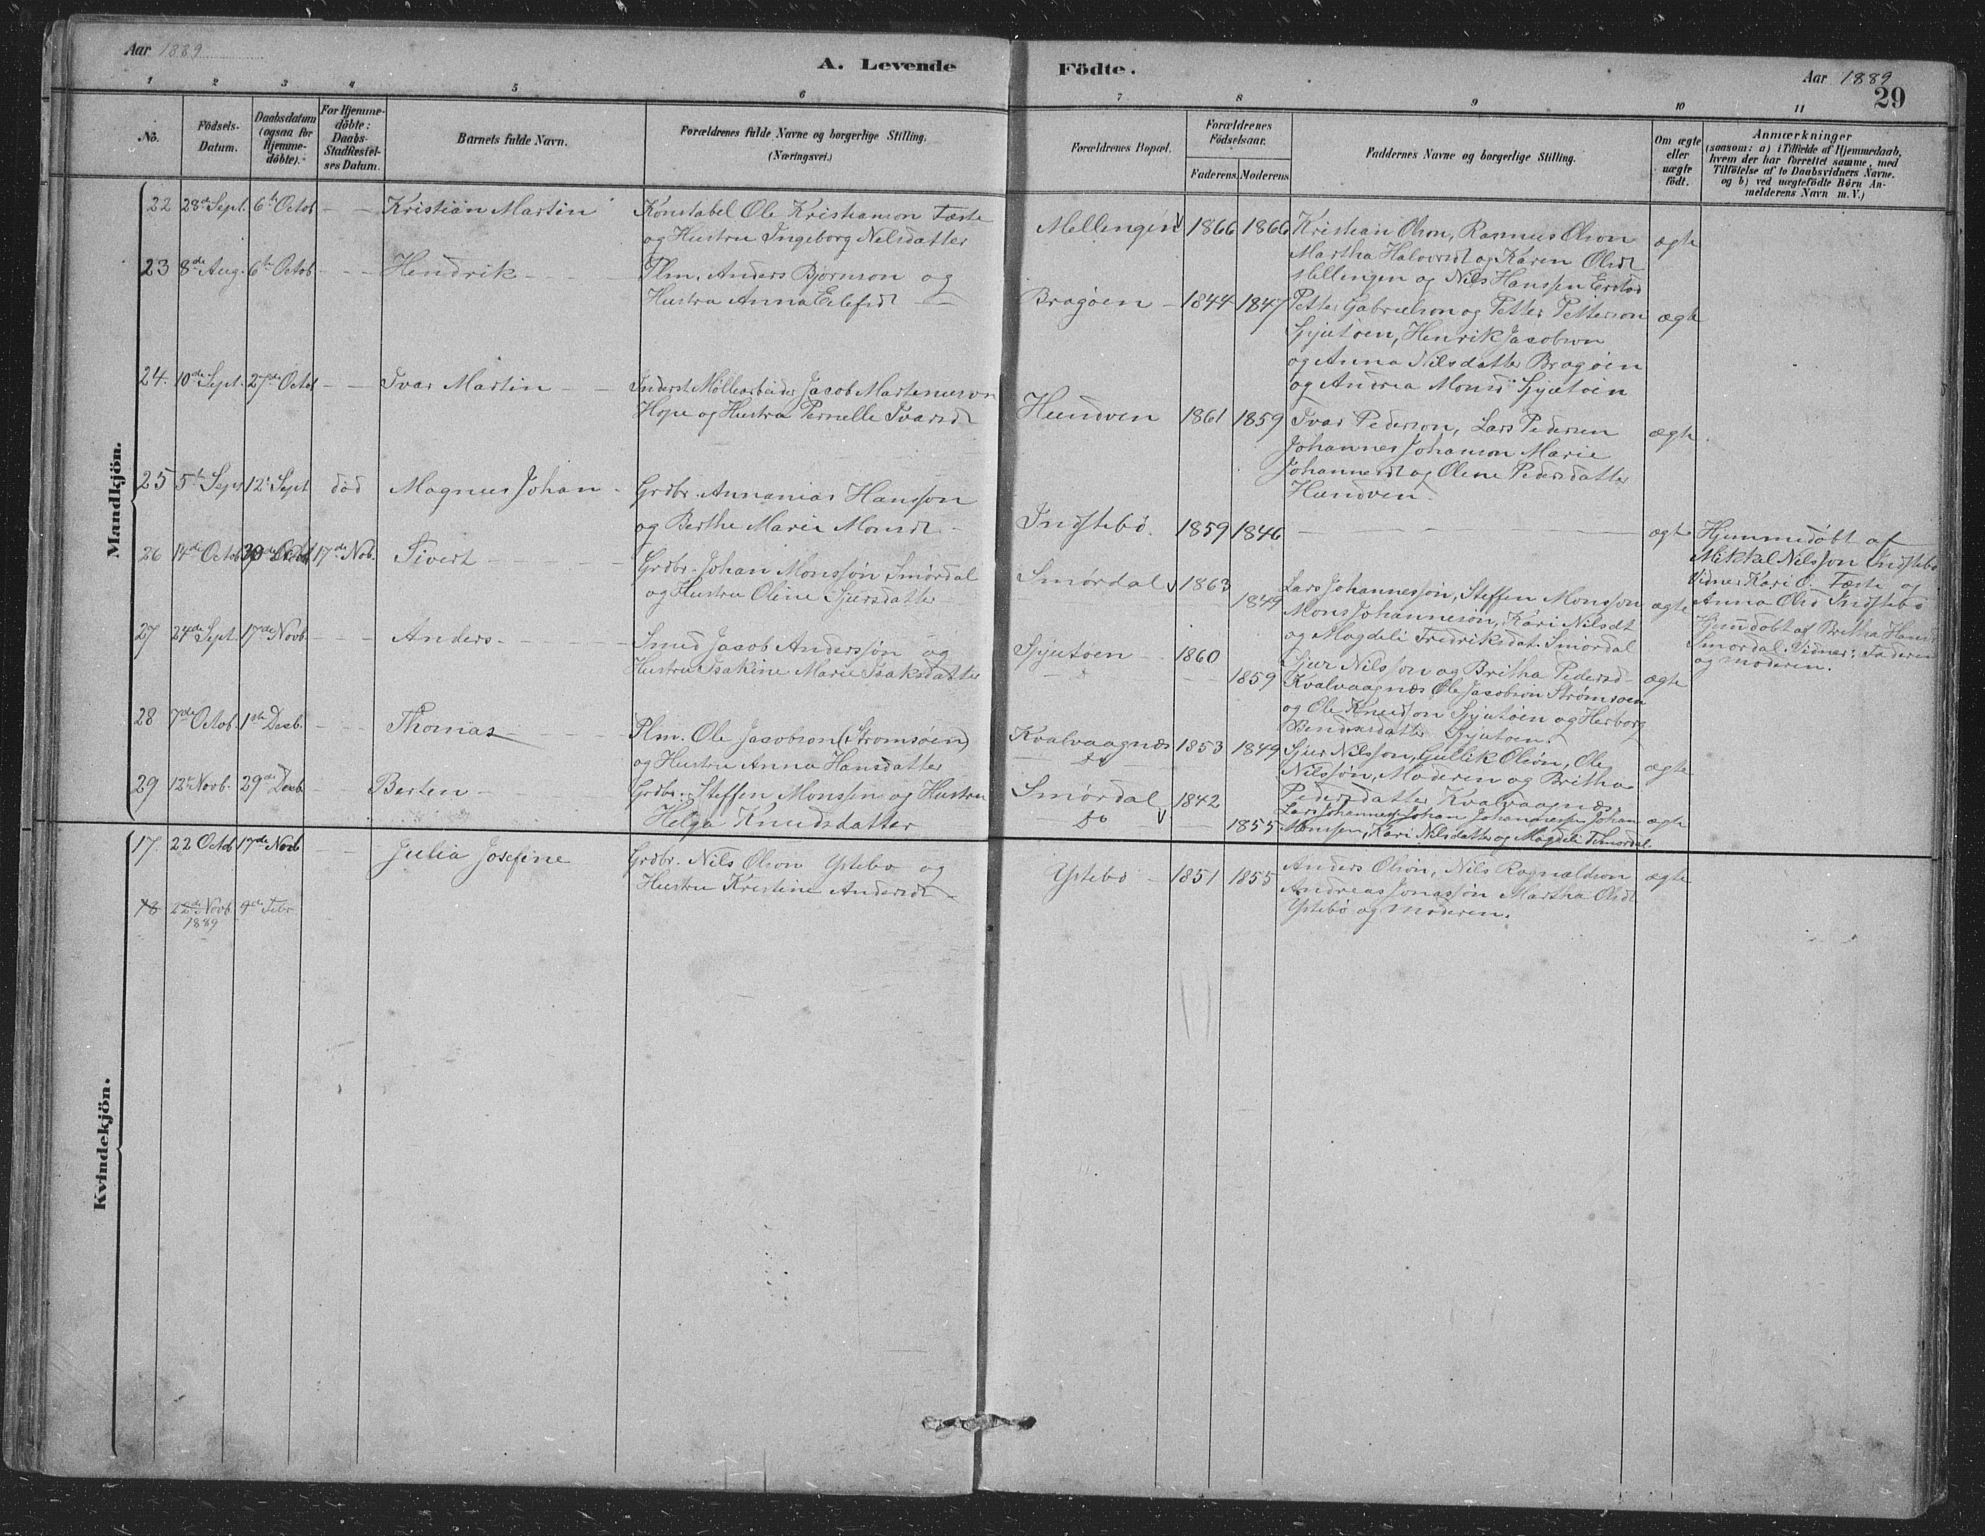 Aar 1889
A. Levende Födte.
Aar 1889
29
1 2 3 4 5 6 7 8 9 10 11
No.
Födsels-
Datum.
Daabsdatum
(ogsaa for
Hjemme-
döbte).
For Hjemme-
döbte:
Daabs-
Stadfestel-
ses Datum.
Barnets fulde Navn.
Forældrenes fulde Navne og borgerlige Stilling.
(Næringsvei.)
Forældrenes Bopæl.
Forældrenes
Födselsaar.
Faderens. Moderens.
Faddernes Navne og borgerlige Stilling.
Om ægte
eller
uægte
födt.
Anmærkninger
(saasom: a) i Tilfælde af Hjemmedaab,
hvem der har forrettet samme, med
Tilföielse af to Daabsvidners Navne.
og b) ved uægtefödte Börn An-
melderens Navn m. V.)
Mandkjön.
22 28de Sept. 6te Octob — — Kristian Martin Konstabel Ole Kristianson Tæste
og Hustru Ingeborg Nelsdatter
Mellingen 1866 1866 Kristian Olson, Rasmus Olson
Martha Halvorsdt og Karen Olsdt
Mellingen og Nils Hanssen
ægte
23 8de Aug. 6te Octob — — Hendrik — — Plm. Anders Bjørnson og
Hustru Anna Eilefsdt —
Bragøen — 1844 1847 Petter Gabrielson og Petter Petterson
Spjutøen, Henrik Jacobson
og Anna Nilsdatter Bragøen
og Andrea Monsd Spjutøen
ægte
24. 10de Sept. 27de Octob — — Ivar Martin — — Inderst Møllearbeider Jacob Martenuson
Hope og Hustru Pernelle Ivarsdt
Hundven 1861 1859 Ivar Pederson, Lars Pedersen
Johannes Johanson Marie
Johannesdt og Olene Pedersdatter
Hundven.
ægte
25 5te Sept 12te Sept død Magnus Johan — Grdbr. Annanias Hansson
og Berthe Marie Monsdt —
Indstebø 1859 1846 — — ægte Hjemmedøbt af
Mikkal Nilsson Indstebø
Vidner Kari O. Tæste og
Anna Olsd Indstebø
26 14de Octob 17de Nob. Sivert — — Grdbr. Johan Monssøn Smørdal
og Hustru Oline Sjursdatter
Smørdal 1863 1849 Lars Johannessøn, Steffen Monsson
Mons Johanneson, Kari Nilsdt
og Magdeli Fredriksdat. Smørdal
ægte Hjemdøbt af Britha Hansd
Smørdal. Vidner: Faderen
og Moderen.
27 24de Sept. 17de Novb — — Anders — — Smed Jacob Anderssøn og
Hustru Isakine Marie Isaksdatter
Spjutøen — 1860 1859 Sjur Nilssøn og Britha Pedersd —
Kvalvaagnæs Ole Jacobson Strømsøen
og Ole Knudson Spjutøen og Herborg
Bendixsdatter Spjutøen.
ægte
28 7de Octob. 1ste Desb. — — Thomas — — Plm. Ole Jacobson (Strømsøen)
og Hustru Anna Hansdatter
Kvalvaagnæs 1853 1849 Sjur Nilssøn, Gullik Olsøn, Ole
Nilssøn, Moderen og Britha
Pedersdatter Kvalvaagnæs.
ægte
29 12te Novb. 29de Desb — — Berten — — Grdbr. Steffen Monssen og Hustru
Helga Knudsdatter
Smørdal 1842
Do 1855 Lars Johannesen Johan Johannessen Johan
Monssen, Kari Nilsdatter og Magdeli F. Smørdal.
ægte
Kvindekjön.
17 22 Octob 17de Novb Julia Josefine Grdbr. Nils Olson Ystebø og
Hustru Kristine Andersdt —
Ystebø — 1851 1855 Anders Olsøn, Nils Ragnaldson
Andreas Jonassøn Martha Olsdt
Ystebø og Moderen.
ægte
18 22de Novb. 9de Febr
1889